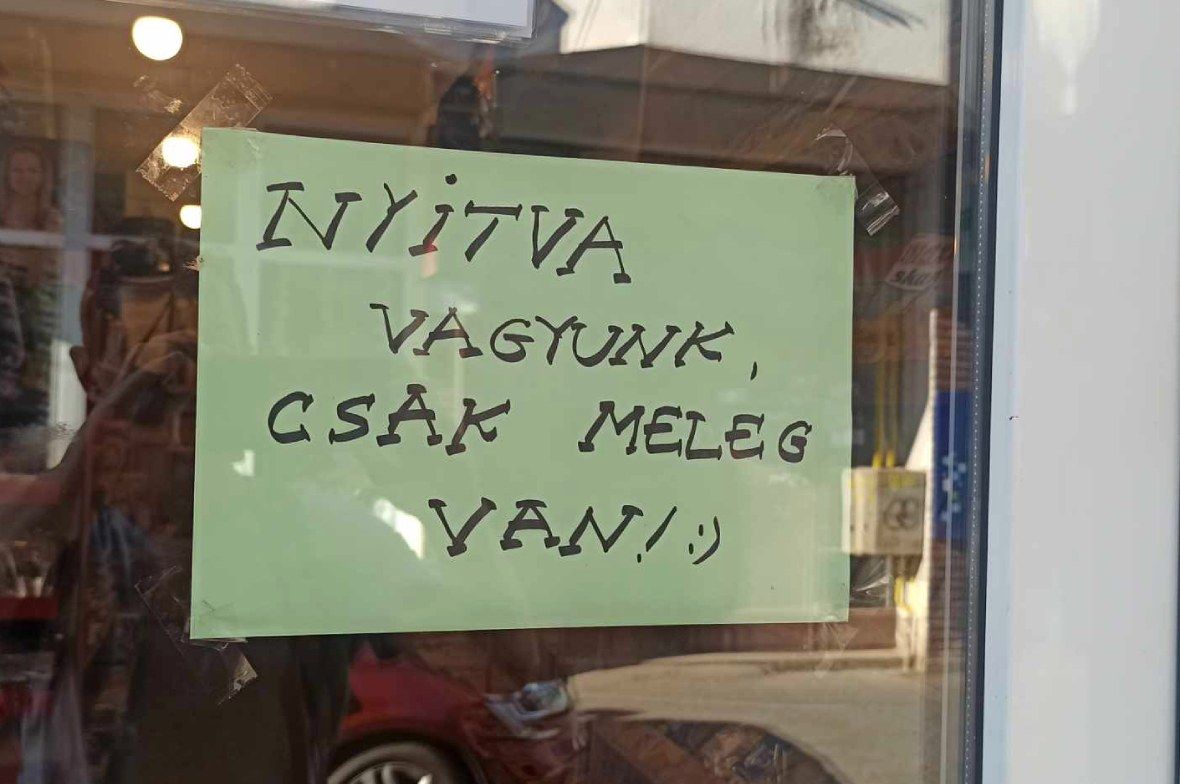 NYITVA
VAGYUNK,
CSAK MELEG
VAN! :)